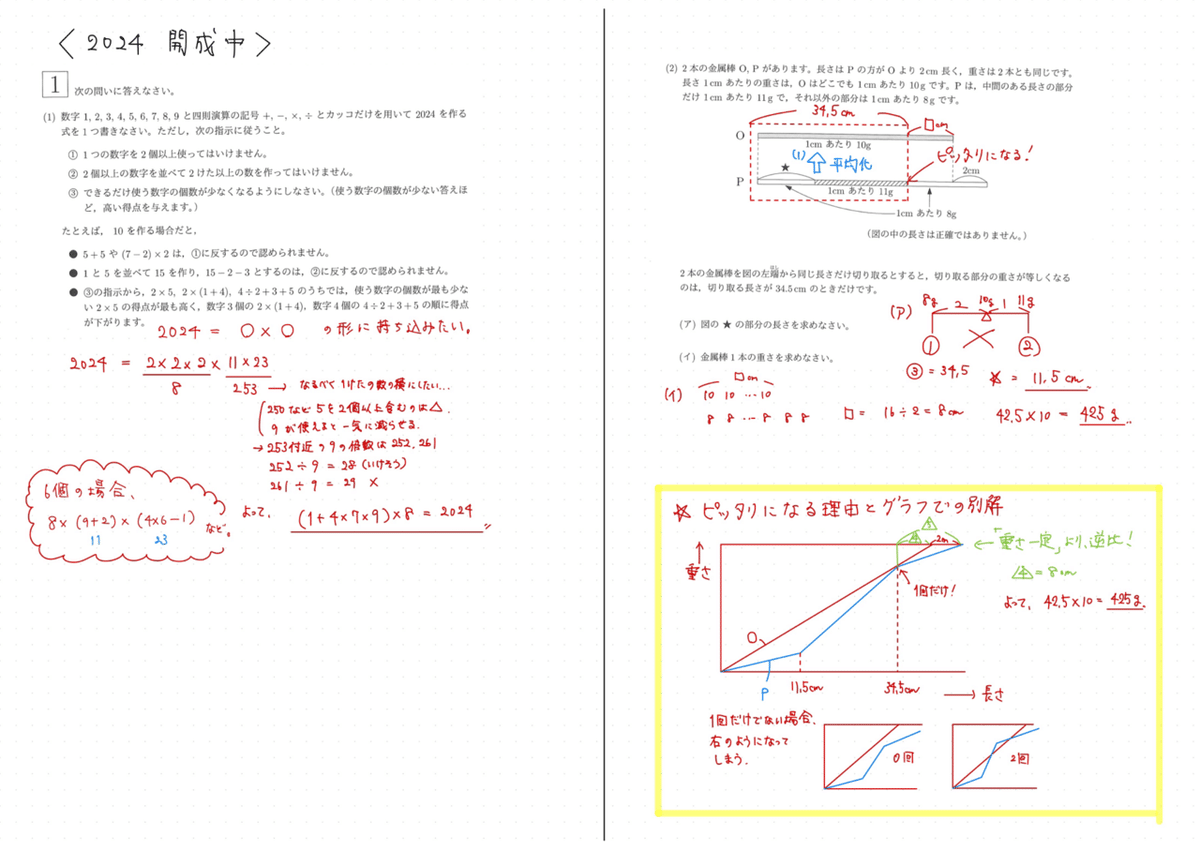 〈 2024 開成中 〉
1 次の問いに答えなさい。
(1) 数字 1, 2, 3, 4, 5, 6, 7, 8, 9 と四則演算の記号 +, −, ×, ÷ とカッコだけを用いて 2024 を作る
式を 1 つ書きなさい。ただし、次の指示に従うこと。
① 1 つの数字を 2 個以上使ってはいけません。
② 2 個以上の数字を並べて 2 けた以上の数を作ってはいけません。
③ できるだけ使う数字の個数が少なくなるようにしなさい。（使う数字の個数が少ない答えほ
ど、高い得点を与えます。）
たとえば、 10 を作る場合だと、
● 5 + 5 や (7 − 2) × 2 は、①に反するので認められません。
● 1 と 5 を並べて 15 を作り、15 − 2 − 3 とするのは、②に反するので認められません。
● ③の指示から、2 × 5, 2 × (1 + 4), 4 ÷ 2 + 3 + 5 のうちでは、使う数字の個数が最も少な
い 2 × 5 の得点が最も高く、数字 3 個の 2 × (1 + 4)、数字 4 個の 4 ÷ 2 + 3 + 5 の順に得点
が下がります。
2024 = ○ × ○ の形に持ち込みたい。
2024 = 2 × 2 × 2 × 11 × 23
8 253 → なるべく1けたの数の積にしたい…
250など 5を2個以上含むのは△.
9が使えると一気に減らせる.
→ 253付近の9の倍数は 252, 261
252 ÷ 9 = 28 (いけそう)
261 ÷ 9 = 29 ×
よって、 (1+4×7×9)×8 = 2024
6個の場合、
8× (9+2) × (4×6−1) など。
11 23
(2) 2 本の金属棒 O, P があります。長さは P の方が O より 2 cm 長く、重さは 2 本とも同じです。
長さ 1 cm あたりの重さは、O はどこでも 1 cm あたり 10 g です。P は、中間のある長さの部分
だけ 1 cm あたり 11 g で、それ以外の部分は 1 cm あたり 8 g です。
34,5cm
□cm
O
1cm あたり 10g
(1) 平均化
ピッタリになる!
★
2cm
P
1cm あたり 11g
1cm あたり 8g
（図の中の長さは正確ではありません。）
2 本の金属棒を図の左端から同じ長さだけ切り取るとすると、切り取る部分の重さが等しくなる
はし
のは、切り取る長さが 34.5 cm のときだけです。
(ア) 図の ★ の部分の長さを求めなさい。
(ア) 8g 2 10g 1 11g
① ②
③ = 34,5 ☆ = 11.5 cm
(イ) 金属棒 1 本の重さを求めなさい。
(イ) □cm
10 10 … 10
8 8 … 8 8 8
□ = 16÷2 = 8cm 42.5×10 = 425g
☆ ピッタリになる理由とグラフでの別解
↑重さ
5
4 2m
← 「重さ一定」より、逆比!
4 = 8cm
よって、 42.5×10 = 425g
1回だけ!
O
P
11,5cm 34,5cm → 長さ
1回だけでない場合、
右のようになって
しまう.
0回 2回